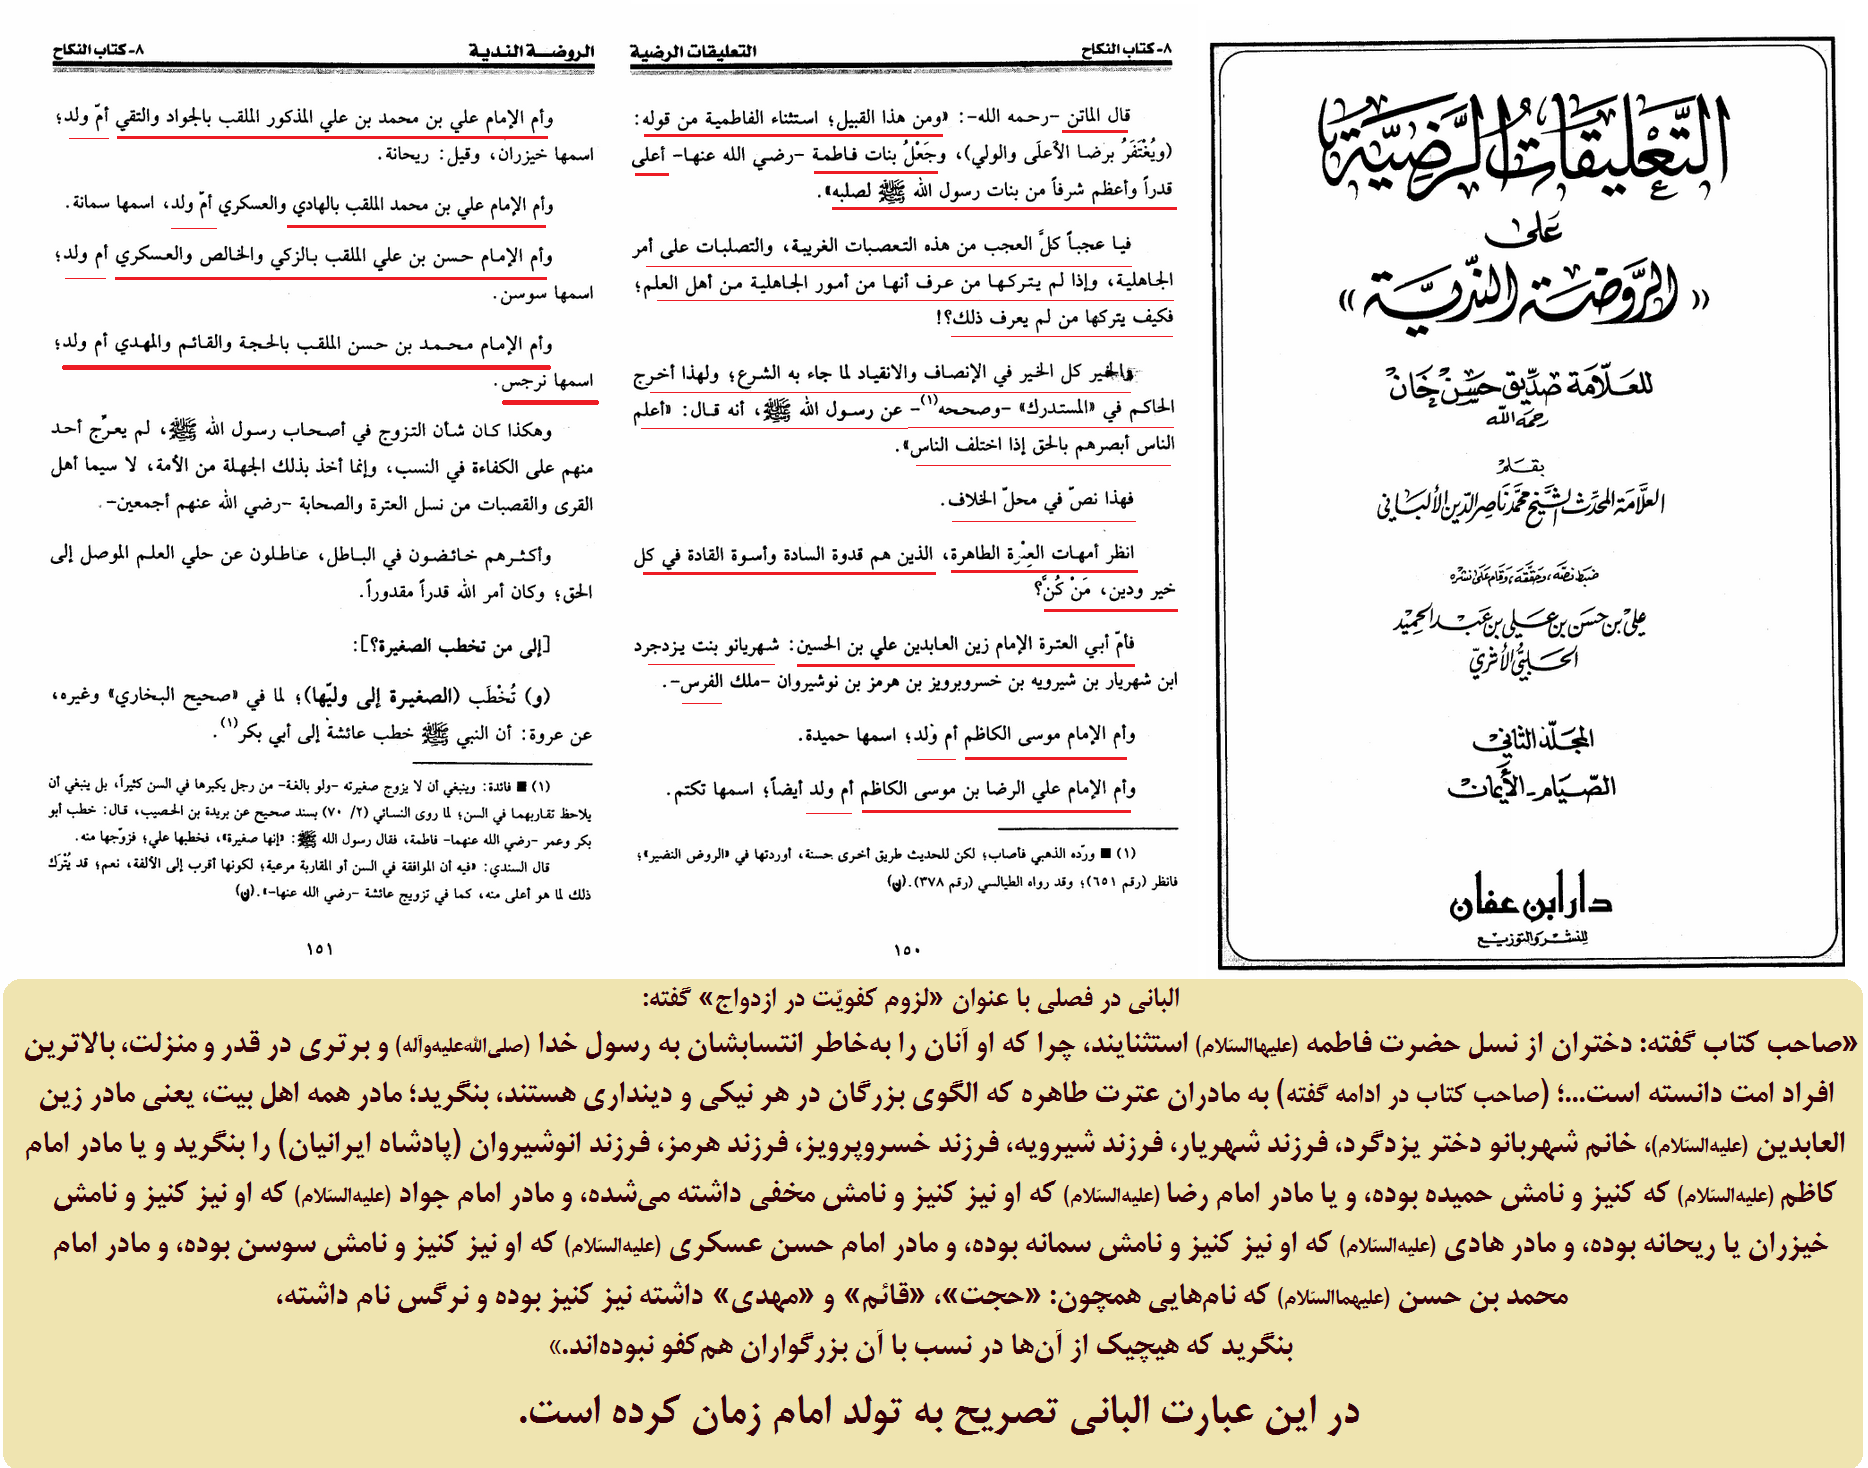 التّعليقات الرّضيّة
على
«الرّوضة النّديّة»
للعلّامة صدّيق حسن خان
رحمه الله
بقلم
العلّامة المحدّث الشّيخ محمّد ناصر الدّين الألباني
ضبط نصّه، وحقّقه، وقام على نشره
علي بن حسن بن علي بن عبد الحميد
الحلبيّ الأثريّ
المجلّد الثاني
الصّيام - الأيمان
دار ابن عفان
للنشر والتوزيع
٨- كتاب النكاح
التعليقات الرضية
قال الماتن -رحمه الله-: «ومن هذا القبيل؛ استثناء الفاطمية من قوله:
(ويُغْتَفَرُ برضا الأعلَى والولي)، وجَعْلُ بنات فاطمة -رضي الله عنها- أعلى
قدراً وأعظم شرفاً من بنات رسول الله ﷺ لصلبه».
فيا عجباً كلَّ العجب من هذه التعصبات الغريبة، والتصلبات على أمر
الجاهلية، وإذا لم يتركها من عرف أنها من أمور الجاهلية من أهل العلم؛
فكيف يتركها من لم يعرف ذلك؟!
والخير كل الخير في الإنصاف والانقياد لما جاء به الشرع؛ ولهذا أخرج
الحاكم في «المستدرك» -وصححه(١)- عن رسول الله ﷺ، أنه قال: «أعلم
الناس أبصرهم بالحق إذا اختلف الناس».
فهذا نصّ في محلّ الخلاف.
انظر أمهات العِتْرة الطاهرة، الذين هم قدوة السادة وأسوة القادة في كل
خير ودين، مَنْ كُنَّ؟
فأمّ أبي العترة الإمام زين العابدين علي بن الحسين: شهربانو بنت يزدجرد
ابن شهريار بن شيرويه بن خسروبرويز بن هرمز بن نوشيروان -ملك الفرس-.
وأم الإمام موسى الكاظم أم ولد؛ اسمها حميدة.
وأم الإمام علي الرضا بن موسى الكاظم أم ولد أيضاً؛ اسمها تكتم.
(١) ■ وردّه الذهبي فأصاب؛ لكن للحديث طريق أخرى حسنة، أوردتها في «الروض النضير»؛
فانظر (رقم ٦٥١)؛ وقد رواه الطيالسي (رقم ٣٧٨).(ن)
١٥٠
٨- كتاب النكاح
الروضة الندية
وأم الإمام علي بن محمد بن علي المذكور الملقب بالجواد والتقي أمّ ولد؛
اسمها خيزران، وقيل: ريحانة.
وأم الإمام علي بن محمد الملقب بالهادي والعسكري أمّ ولد، اسمها سمانة.
وأم الإمام حسن بن علي الملقب بالزكي والخالص والعسكري أم ولد؛
اسمها سوسن.
وأم الإمام محمد بن حسن الملقب بالحجة والقائم والمهدي أم ولد؛
اسمها نرجس.
وهكذا كان شأن التزوج في أصحاب رسول الله ﷺ، لم يعرِّج أحد
منهم على الكفاءة في النسب، وإنما أخذ بذلك الجهلة من الأمة، لا سيما أهل
القرى والقصبات من نسل العترة والصحابة -رضي الله عنهم أجمعين-.
وأكثرهم خائضون في الباطل، عاطلون عن حلي العلم الموصل إلى
الحق؛ وكان أمر الله قدراً مقدوراً.
[إلى من تخطب الصغيرة؟]:
(و) تُخْطَب (الصغيرة إلى وليّها)؛ لما في «صحيح البخاري» وغيره،
عن عروة: أن النبي ﷺ خطب عائشة إلى أبي بكر(١).
(١) ■ فائدة: وينبغي أن لا يزوج صغيرته -ولو بالغة- من رجل يكبرها في السن كثيراً، بل ينبغي أن
يلاحظ تقاربهما في السن؛ لما روى النسائي (٢/ ٧٠) بسند صحيح عن بريدة بن الحصيب، قال: خطب أبو
بكر وعمر -رضي الله عنهما- فاطمة، فقال رسول الله ﷺ: «إنها صغيرة»، فخطبها علي؛ فزوّجها منه.
قال السندي: «فيه أن الموافقة في السن أو المقاربة مرعية؛ لكونها أقرب إلى الألفة، نعم؛ قد يُتْرَك
ذلك لما هو أعلى منه، كما في تزويج عائشة -رضي الله عنها-».(ن)
١٥١
البانی در فصلی با عنوان «لزوم کفویّت در ازدواج» گفته:
«صاحب کتاب گفته: دختران از نسل حضرت فاطمه (علیهاالسّلام) استثنایند، چرا که او آنان را به‌خاطر انتسابشان به رسول خدا (صلی‌الله‌علیه‌وآله) و برتری در قدر و منزلت، بالاترین
افراد امت دانسته است...؛ (صاحب کتاب در ادامه گفته) به مادران عترت طاهره که الگوی بزرگان در هر نیکی و دینداری هستند، بنگرید؛ مادر همه اهل بیت، یعنی مادر زین
العابدین (علیه‌السّلام)، خانم شهربانو دختر یزدگرد، فرزند شهریار، فرزند شیرویه، فرزند خسروپرویز، فرزند هرمز، فرزند انوشیروان (پادشاه ایرانیان) را بنگرید و یا مادر امام
کاظم (علیه‌السّلام) که کنیز و نامش حمیده بوده، و یا مادر امام رضا (علیه‌السّلام) که او نیز کنیز و نامش مخفی داشته می‌شده، و مادر امام جواد (علیه‌السّلام) که او نیز کنیز و نامش
خیزران یا ریحانه بوده، و مادر هادی (علیه‌السّلام) که او نیز کنیز و نامش سمانه بوده، و مادر امام حسن عسکری (علیه‌السّلام) که او نیز کنیز و نامش سوسن بوده، و مادر امام
محمد بن حسن (علیهماالسّلام) که نام‌هایی همچون: «حجت»، «قائم» و «مهدی» داشته نیز کنیز بوده و نرگس نام داشته،
بنگرید که هیچیک از آن‌ها در نسب با آن بزرگواران هم‌کفو نبوده‌اند.»
در این عبارت البانی تصریح به تولد امام زمان کرده است.